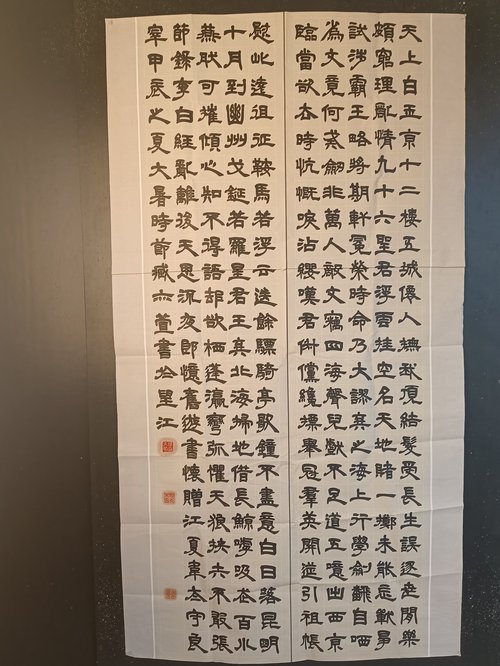 天上白玉京十二樓五城僊人撫我頂結髮受長生誤逐世間樂
頗窮理亂情九十六聖君浮雲挂空名天地賭一擲未能忘戰爭
試涉霸王略將期軒冕榮時命乃大謬棄之海上行學劍翻自哂
為文竟何成劍非萬人敵文竊四海聲兒戲不足道五噫出西京
臨當欲去時慷慨淚沾纓嘆君倜儻纔標舉冠羣英開筵引祖帳
慰此遠徂征鞍馬若浮云送餘驃騎亭歌鐘不盡意白日落昆明
十月到幽州戈鋋若羅星君王棄北海掃地借長鯨呼吸走百川
燕肰可摧傾心知不得語卻欲栖蓬瀛彎弧懼天狼挾矢不敢張
節錄李白經亂離後天恩流夜郎憶舊遊書懷贈江夏韋太守良
宰甲辰之夏大暑時節臧亦萱書於望江